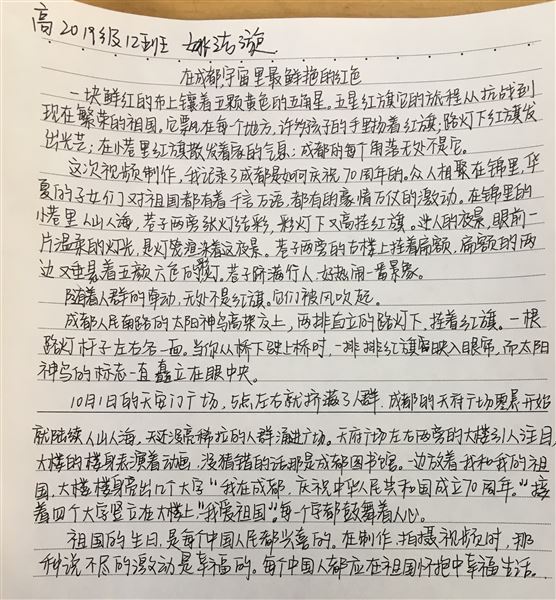 高2019级12班
在成都,宇宙里最鲜艳的红色
一块鲜红的布上镶着五颗黄色的五角星。五星红旗它的旅程从抗战到
现在繁荣的祖国。它飘在每个地方,许多孩子的手里扬着红旗;路灯下红旗发
出光芒;在小巷里红旗散发着家的气息;成都的每个角落无处不是它。
这次视频制作,我记录了成都是如何庆祝70周年的。众人相聚在锦里,华
夏的子女们对祖国都有着千言万语,都有的豪情万仗的激动。在锦里的
小巷里人山人海,巷子两旁张灯结彩,彩灯下又高挂红旗。迷人的夜景,眼前一
片温柔的灯光,是灯笼渲染着这夜景。巷子两旁的古楼上挂着扁额,扁额的两
边又垂悬着五颜六色的彩灯。巷子挤满行人,好热闹一番景象。
随着人群的牵动,无处不是红旗。它们被风吹起。
成都人民南路的太阳神鸟高架友上,两排直立的路灯下,挂着红旗。一根
路灯杆子左右各一面。当你从桥下驶上桥时,一排排红旗映入眼帘,而太阳
神鸟的标志一直矗立在眼中央。
10月1日的天安门广场,5点左右就挤满了人群,成都的天府广场里暴开始
就陆续人山人海,天还没亮稀拉的人群涌进广场。天府广场左右两旁的大楼引人注目,
大楼的楼身表演着动画,没猜错的话那是成都图书馆。一边放着我和我的祖
国,大楼楼身亮出几个大字“我在成都,庆祝中华人民共和国成立70周年。”接
着四个大字竖立在大楼上“我爱祖国”。每个字都鼓舞着人心。
祖国的生日,是每个中国人民都兴喜的。在制作,拍摄视频时,那
种说不尽的激动是幸福的。每个中国人都应在祖国怀抱中幸福生活。